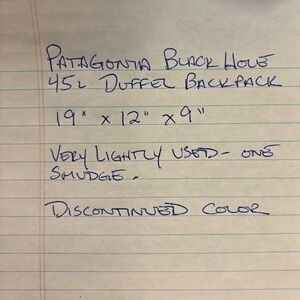 PATAGONIA BLACK HOLE
45L DUFFEL BACKPACK
19" x 12" x 9"
VERY LIGHTLY USED - ONE
SMUDGE.
DISCONTINUED COLOR